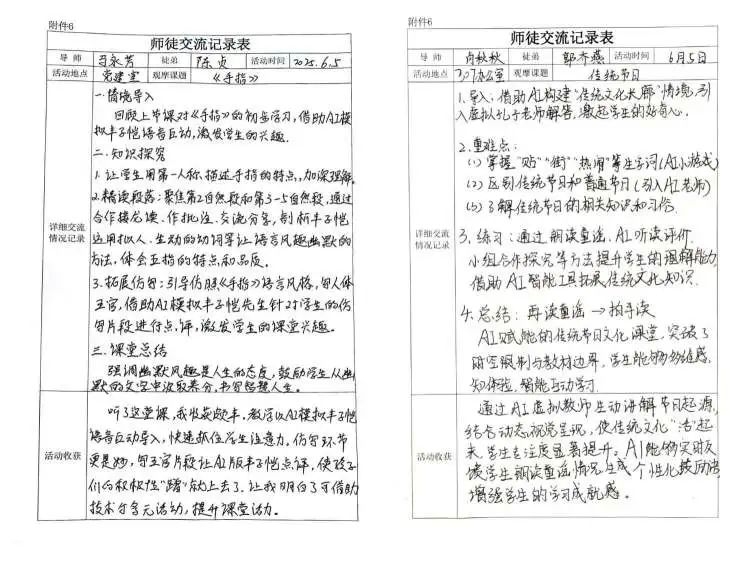 附件6
师徒交流记录表
导 师 马永芳 徒弟 陈贞 活动时间 2025.6.5
活动地点 党建室 观摩课题 《手指》
详细交流情况记录
一.情境导入
回顾上节课对《手指》的初步学习,借助AI模
拟丰子恺语音互动,激发学生的兴趣.
二.知识探究
1.让学生用第一人称,描述手指的特点,加深理解.
2.精读段落:聚焦第2自然段和第3-5自然段,通过
合作接龙读、作批注、交流分享,剖析丰子恺
运用拟人、生动的动词等让语言风趣幽默的
方法,体会五指的特点和品质。
3.拓展仿写:引导仿照《手指》语言风格,写人体
五官,借助AI模拟丰子恺先生针对学生的仿
写片段进行点评,激发学生的课堂兴趣。
三.课堂总结
强调幽默风趣是人生的态度,鼓励学生从幽
默的文字中汲取养分,书写智慧人生。
活动收获
听了这堂课,我收获颇丰,教学以AI模拟丰子恺
语音互动导入,快速抓住学生注意力。仿写环节
更是妙,写五官片段让AI版丰子恺点评,使孩子
们的积极性"蹭"就上去了,让我明白了可借助
技术与多元活动,提升课堂活力。
附件6
师徒交流记录表
导 师 秋秋 徒弟 郭齐燕 活动时间 6月5日
活动地点 307办公室 观摩课题 传统节日
详细交流情况记录
1.导入:借助AI构建"传统文化长廊"情境,引
入虚拟孔子老师解答,激起学生的好奇心。
2.重难点:
(1)掌握"贴""街""热闹"等生字词(AI小游戏)
(2)区别传统节日和普通节日(引入AI老师)
(3)了解传统节日的相关知识和习俗.
3.练习:通过朗读童谣,AI听读评价,
小组合作探究等方法提升学生的理解能力,
借助AI智能工具拓展传统文化知识.
4.总结:再读童谣→拍手读
AI赋能的传统节日文化课堂,突破了
时空限制与教材边界,学生能够多维感
知体验,智能互动学习.
活动收获
通过AI虚拟教师生动讲解节日起源,
结合动态视觉呈现,使传统文化"活"起
来,学生专注度显著提升。AI能够实时反
馈学生朗读童谣情况生成个性化鼓励语,
增强学生的学习成就感。